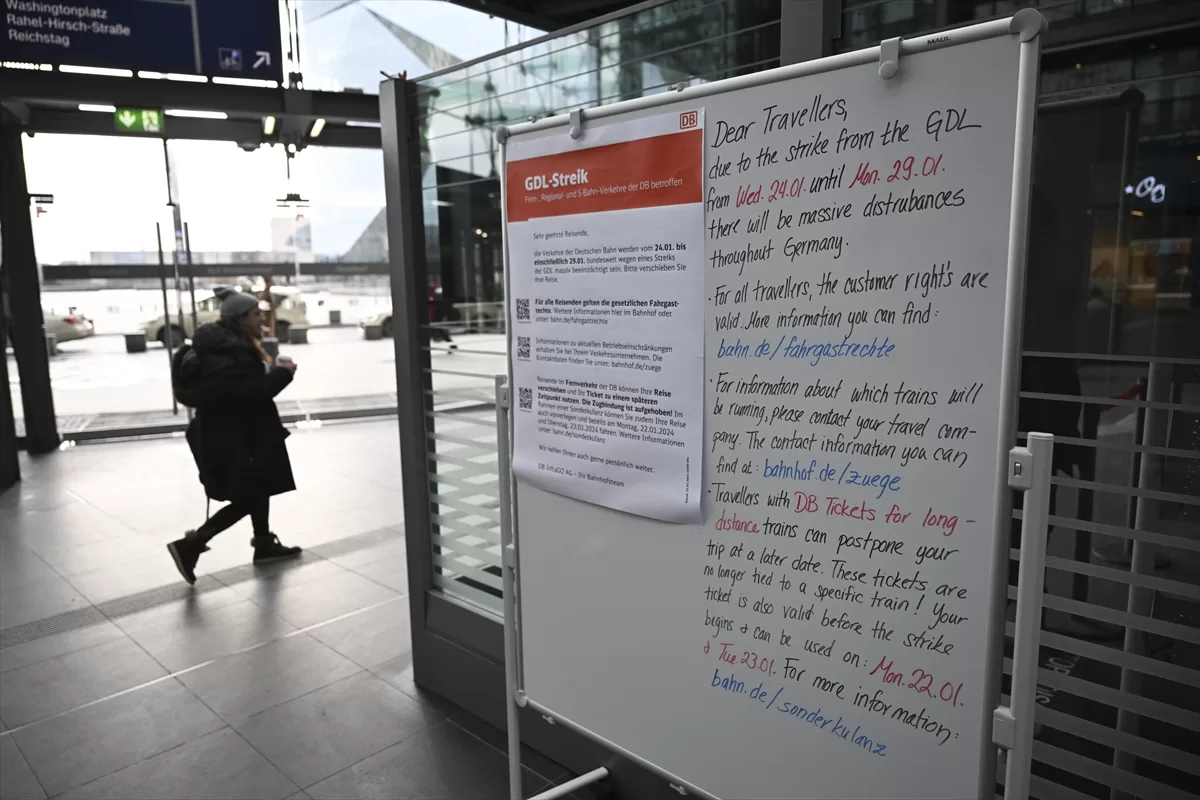 Washingtonplatz
Rahel-Hirsch-Straße
Reichstag
MAUL
DB
GDL-Streik
Fern-, Regional- und S-Bahn-Verkehre der DB betroffen
Sehr geehrte Reisende,
die Verkehre der Deutschen Bahn werden vom 24.01. bis
einschließlich 29.01. bundesweit wegen eines Streiks
der GDL massiv beeinträchtigt sein. Bitte verschieben Sie
Ihre Reise.
Für alle Reisenden gelten die gesetzlichen Fahrgast-
rechte. Weitere Informationen hier im Bahnhof oder
unter: bahn.de/fahrgastrechte
Informationen zu aktuellen Betriebseinschränkungen
erhalten Sie bei Ihrem Verkehrsunternehmen. Die
Kontaktdaten finden Sie unter: bahnhof.de/zuege
Reisende im Fernverkehr der DB können Ihre Reise
verschieben und Ihr Ticket zu einem späteren
Zeitpunkt nutzen. Die Zugbindung ist aufgehoben! Im
Rahmen einer Sonderkulanz können Sie zudem Ihre Reise
auch vorverlegen und bereits am Montag, 22.01.2024
und Dienstag, 23.01.2024 fahren. Weitere Informationen
unter: bahn.de/sonderkulanz
Wir helfen Ihnen auch gerne persönlich weiter.
DB InfraGO AG – Ihr Bahnhofsteam
Dear Travellers,
due to the strike from the GDL
from Wed. 24.01. until Mon. 29.01.
there will be massive distrubances
throughout Germany.
· For all travellers, the customer right's are
valid. More information you can find:
bahn.de/fahrgastrechte
· For information about which trains will
be running, please contact your travel com-
pany. The contact information you can
find at: bahnhof.de/zuege
· Travellers with DB Tickets for long-
distance trains can postpone your
trip at a later date. These tickets are
no longer tied to a specific train! Your
ticket is also valid before the strike
begins & can be used on: Mon. 22.01.
& Tue. 23.01. For more information:
bahn.de/sonderkulanz